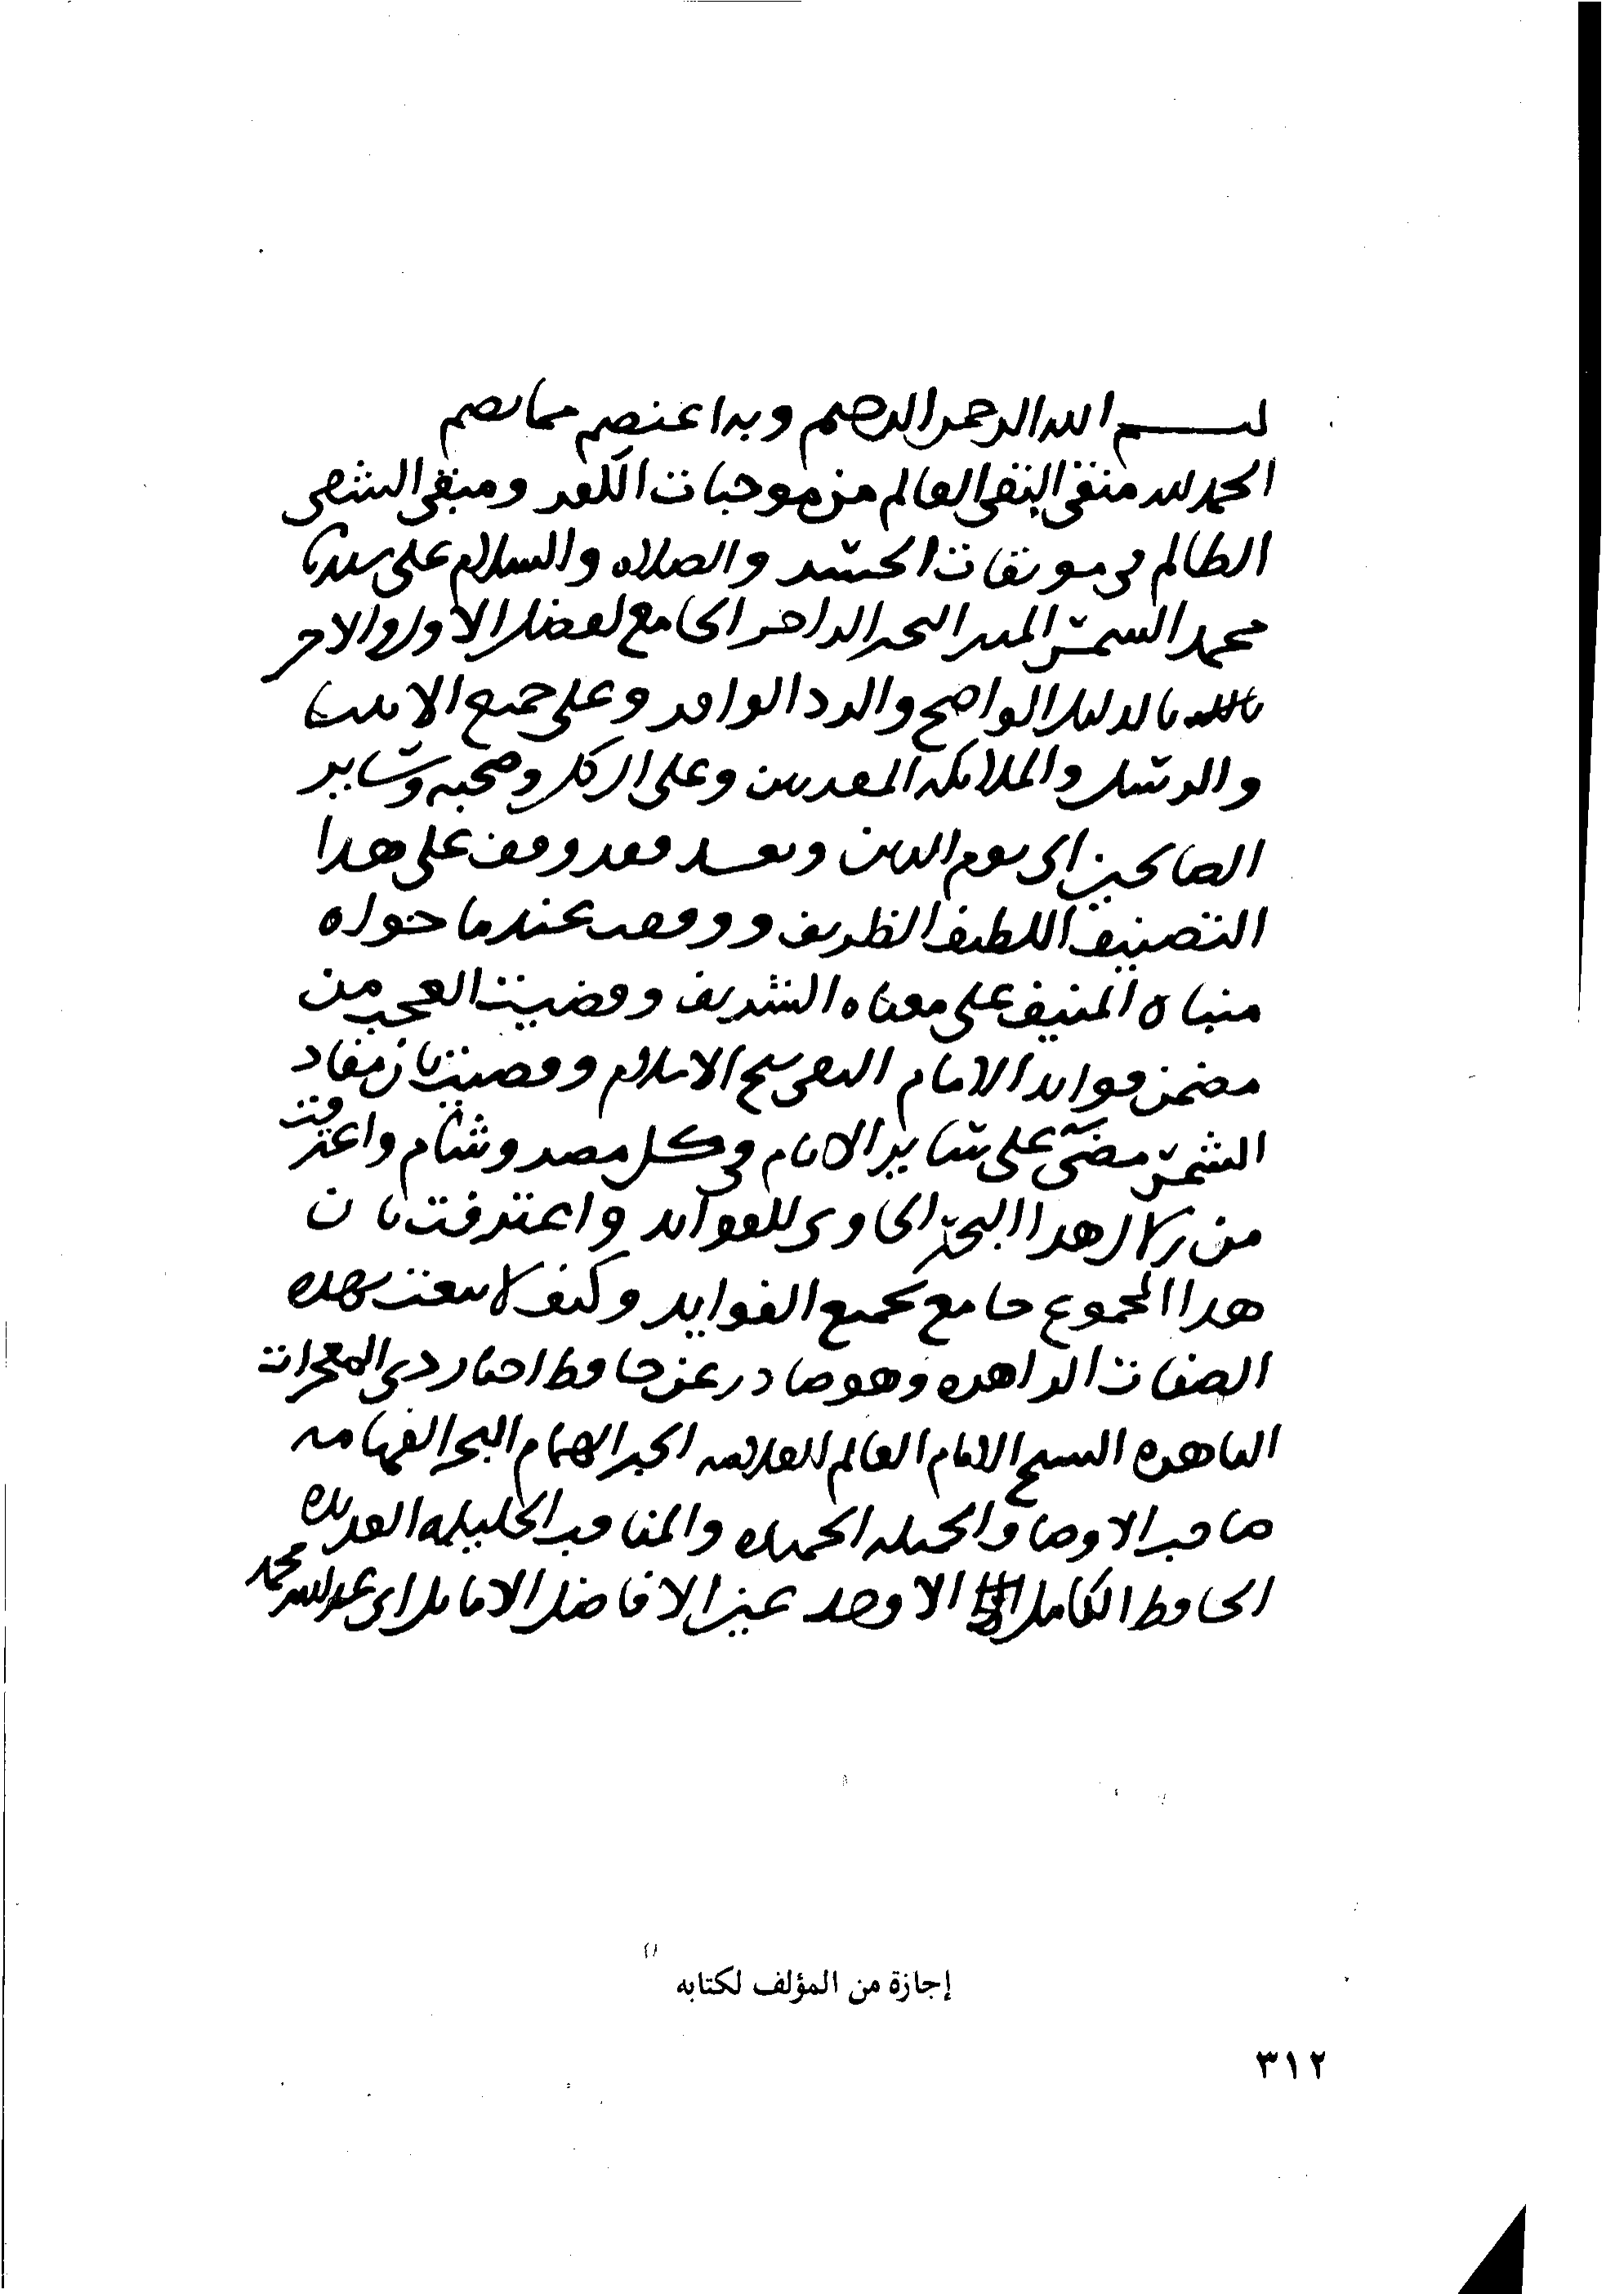 بسم الله الرحمن الرحيم وبه اعتصم مما يصم
الحمد لله منقي التقي العالم من موجبات الكفر ومبقي الشقي
الظالم في موبقات الحشر والصلاه والسلام على سيدنا
محمد الشمس المنير البحر الزاخر الجامع لفضل الاول والاخر
بالدليل الواضح والرد الوافر وعلى جميع الانبيا
والرسل والملايكه المقربين وعلى ال كل وصحبه وساير
الصالحين الى يوم الدين وبعد فقد وقفت على هذا
التصنيف اللطيف الظريف ووقفت عندما حواه
مبناه المنيف على معناه الشريف وقضيت العجب من
مضمن فوايد الامام التقي شيخ الاسلام وقضيت بان مفاد
الشمس مضى على ساير الانام في كل مصر وشام واغترفت
من زلال هذا البحر الحاوي للفوايد واعترفت بان
هذا المجموع جامع لجميع الفوايد وكيف لا ينعت بهذه
الصفات الزاهره وهو صادر عن حافظ اخبار ذي المعجزات
الباهره الشيخ الامام العالم العلامه الحبر الهمام البحر الفهامه
صاحب الاوصاف الجميله الحميده والمناقب الجليله العديده
الحافظ الكامل الاوحد عين الافاضل الاماثل ابي عبد الله محمد
إجازة من المؤلف لكتابه
٣١٢